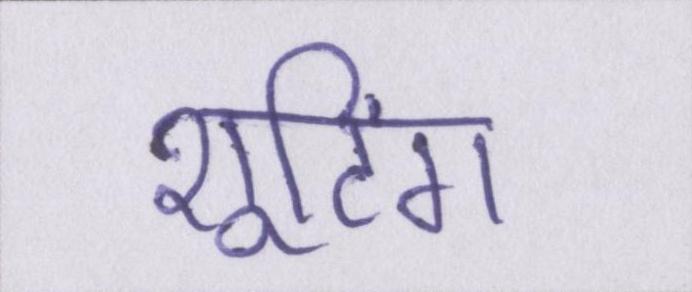 शूटिंग